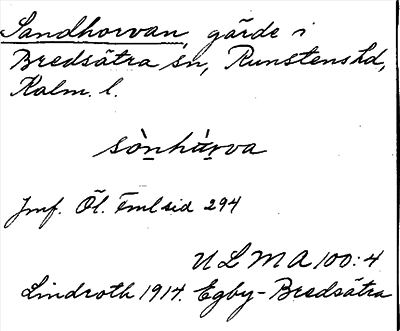 Sandhorvan, gärde i
Bredsätra sn, Runstens hd,
Kalm. l.
sònhá̤rva
Jmf. Öl. Fml sid 294
ULMA 100:4
Lindroth 1914. Egby-Bredsätra